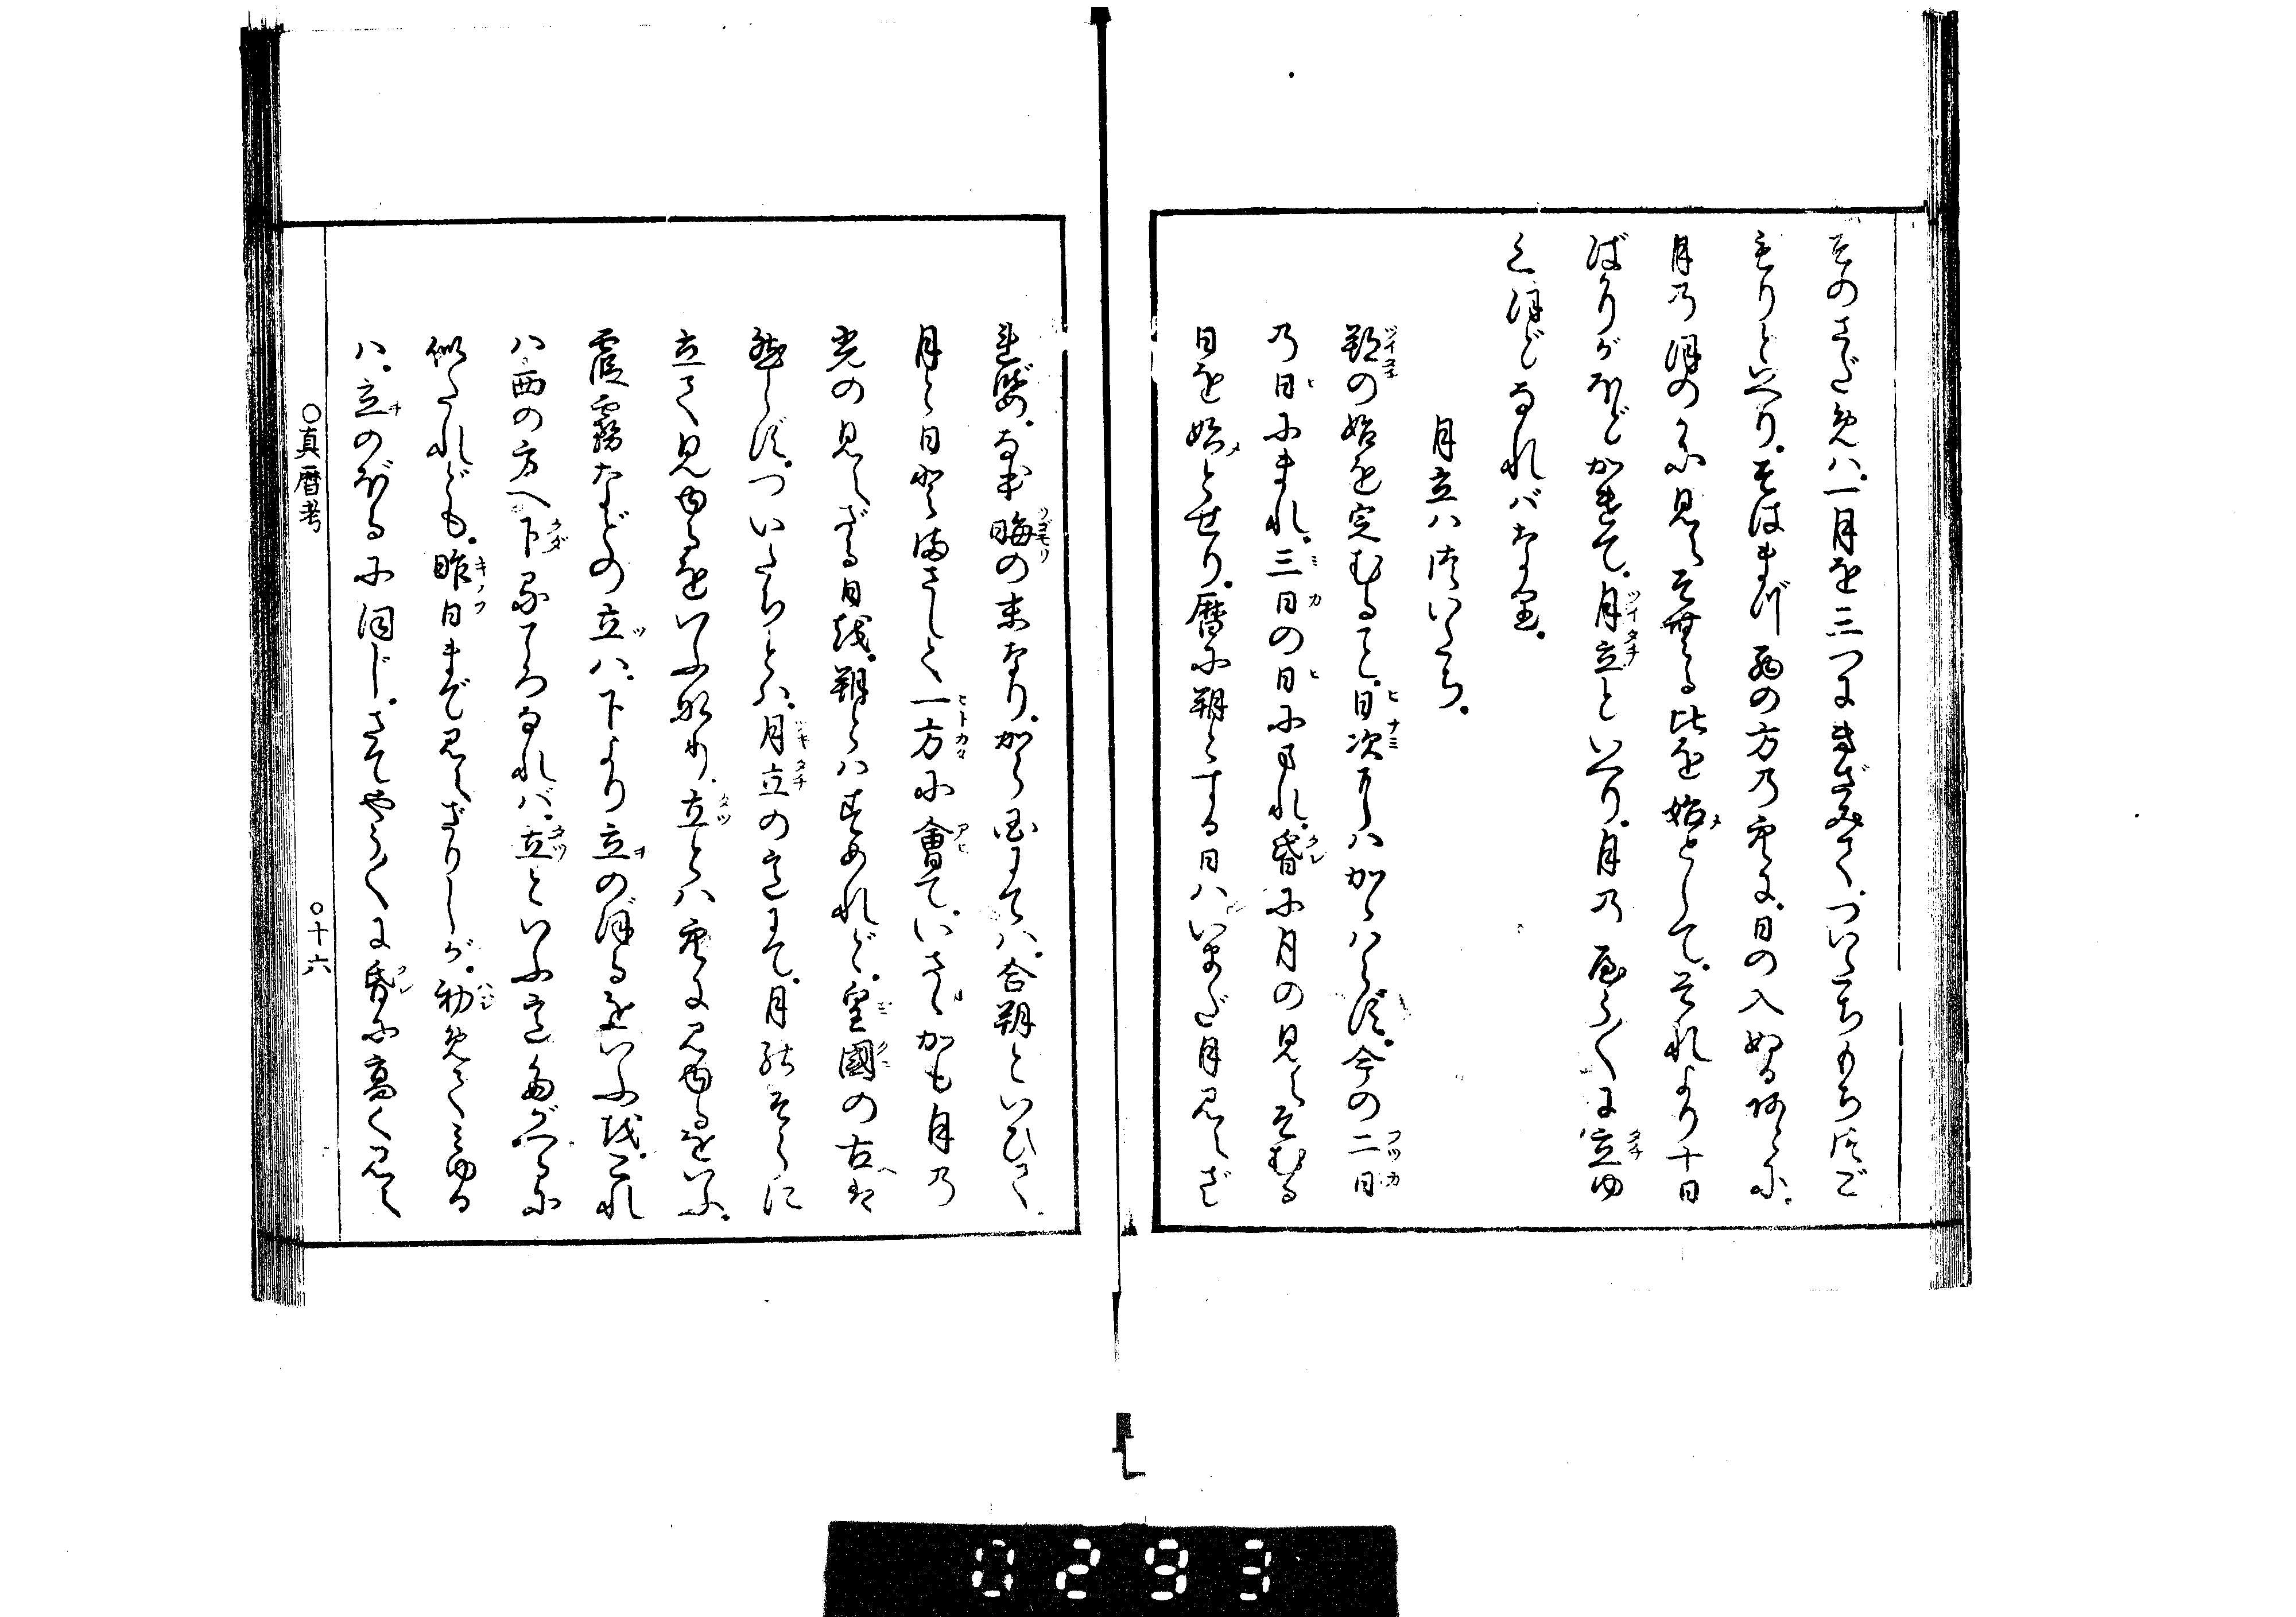 そのさだめハ、一月を三つにきざみて、ついたちもちつご
もりといへり、そはまづ西の方の空に、日の入ぬるあとに、
月のほのかに見えそむる比を始として、それより十日
ばかりがほどかけて、月立といへり、月のやう〱に立ゆ
くほどなれバなり、
月立ハついたち、
朔の始を定むること、日次にハかゝハらず、今の二日
の日にまれ、三日の日にまれ、昏に月の見えそむる
日を始とせり、暦に朔とする日ハ、いまだ月見えざ
れば、なほ晦の末なり、から国にてハ、合朔といひて、
月と日とまさしく一方に會て、いさゝかも月の
光の見えざる日を、朔とハさだめれど、皇國の古は
然らず、ついたちとハ、月立の意にて、月のそらに
立て見ゆるをいふなり、立とハ空に見ゆるをいふ、
霞霧などの立ハ、下より立のぼるをいふを、これ
ハ西の方へ下るころなれバ、立といふ意たがへるに
似たれども、昨日まで見えざりしが、初めて見ゆる
ハ、立のぼるに同じ、さてやう〱に昏に高く見え
○真暦考
○十六
0293